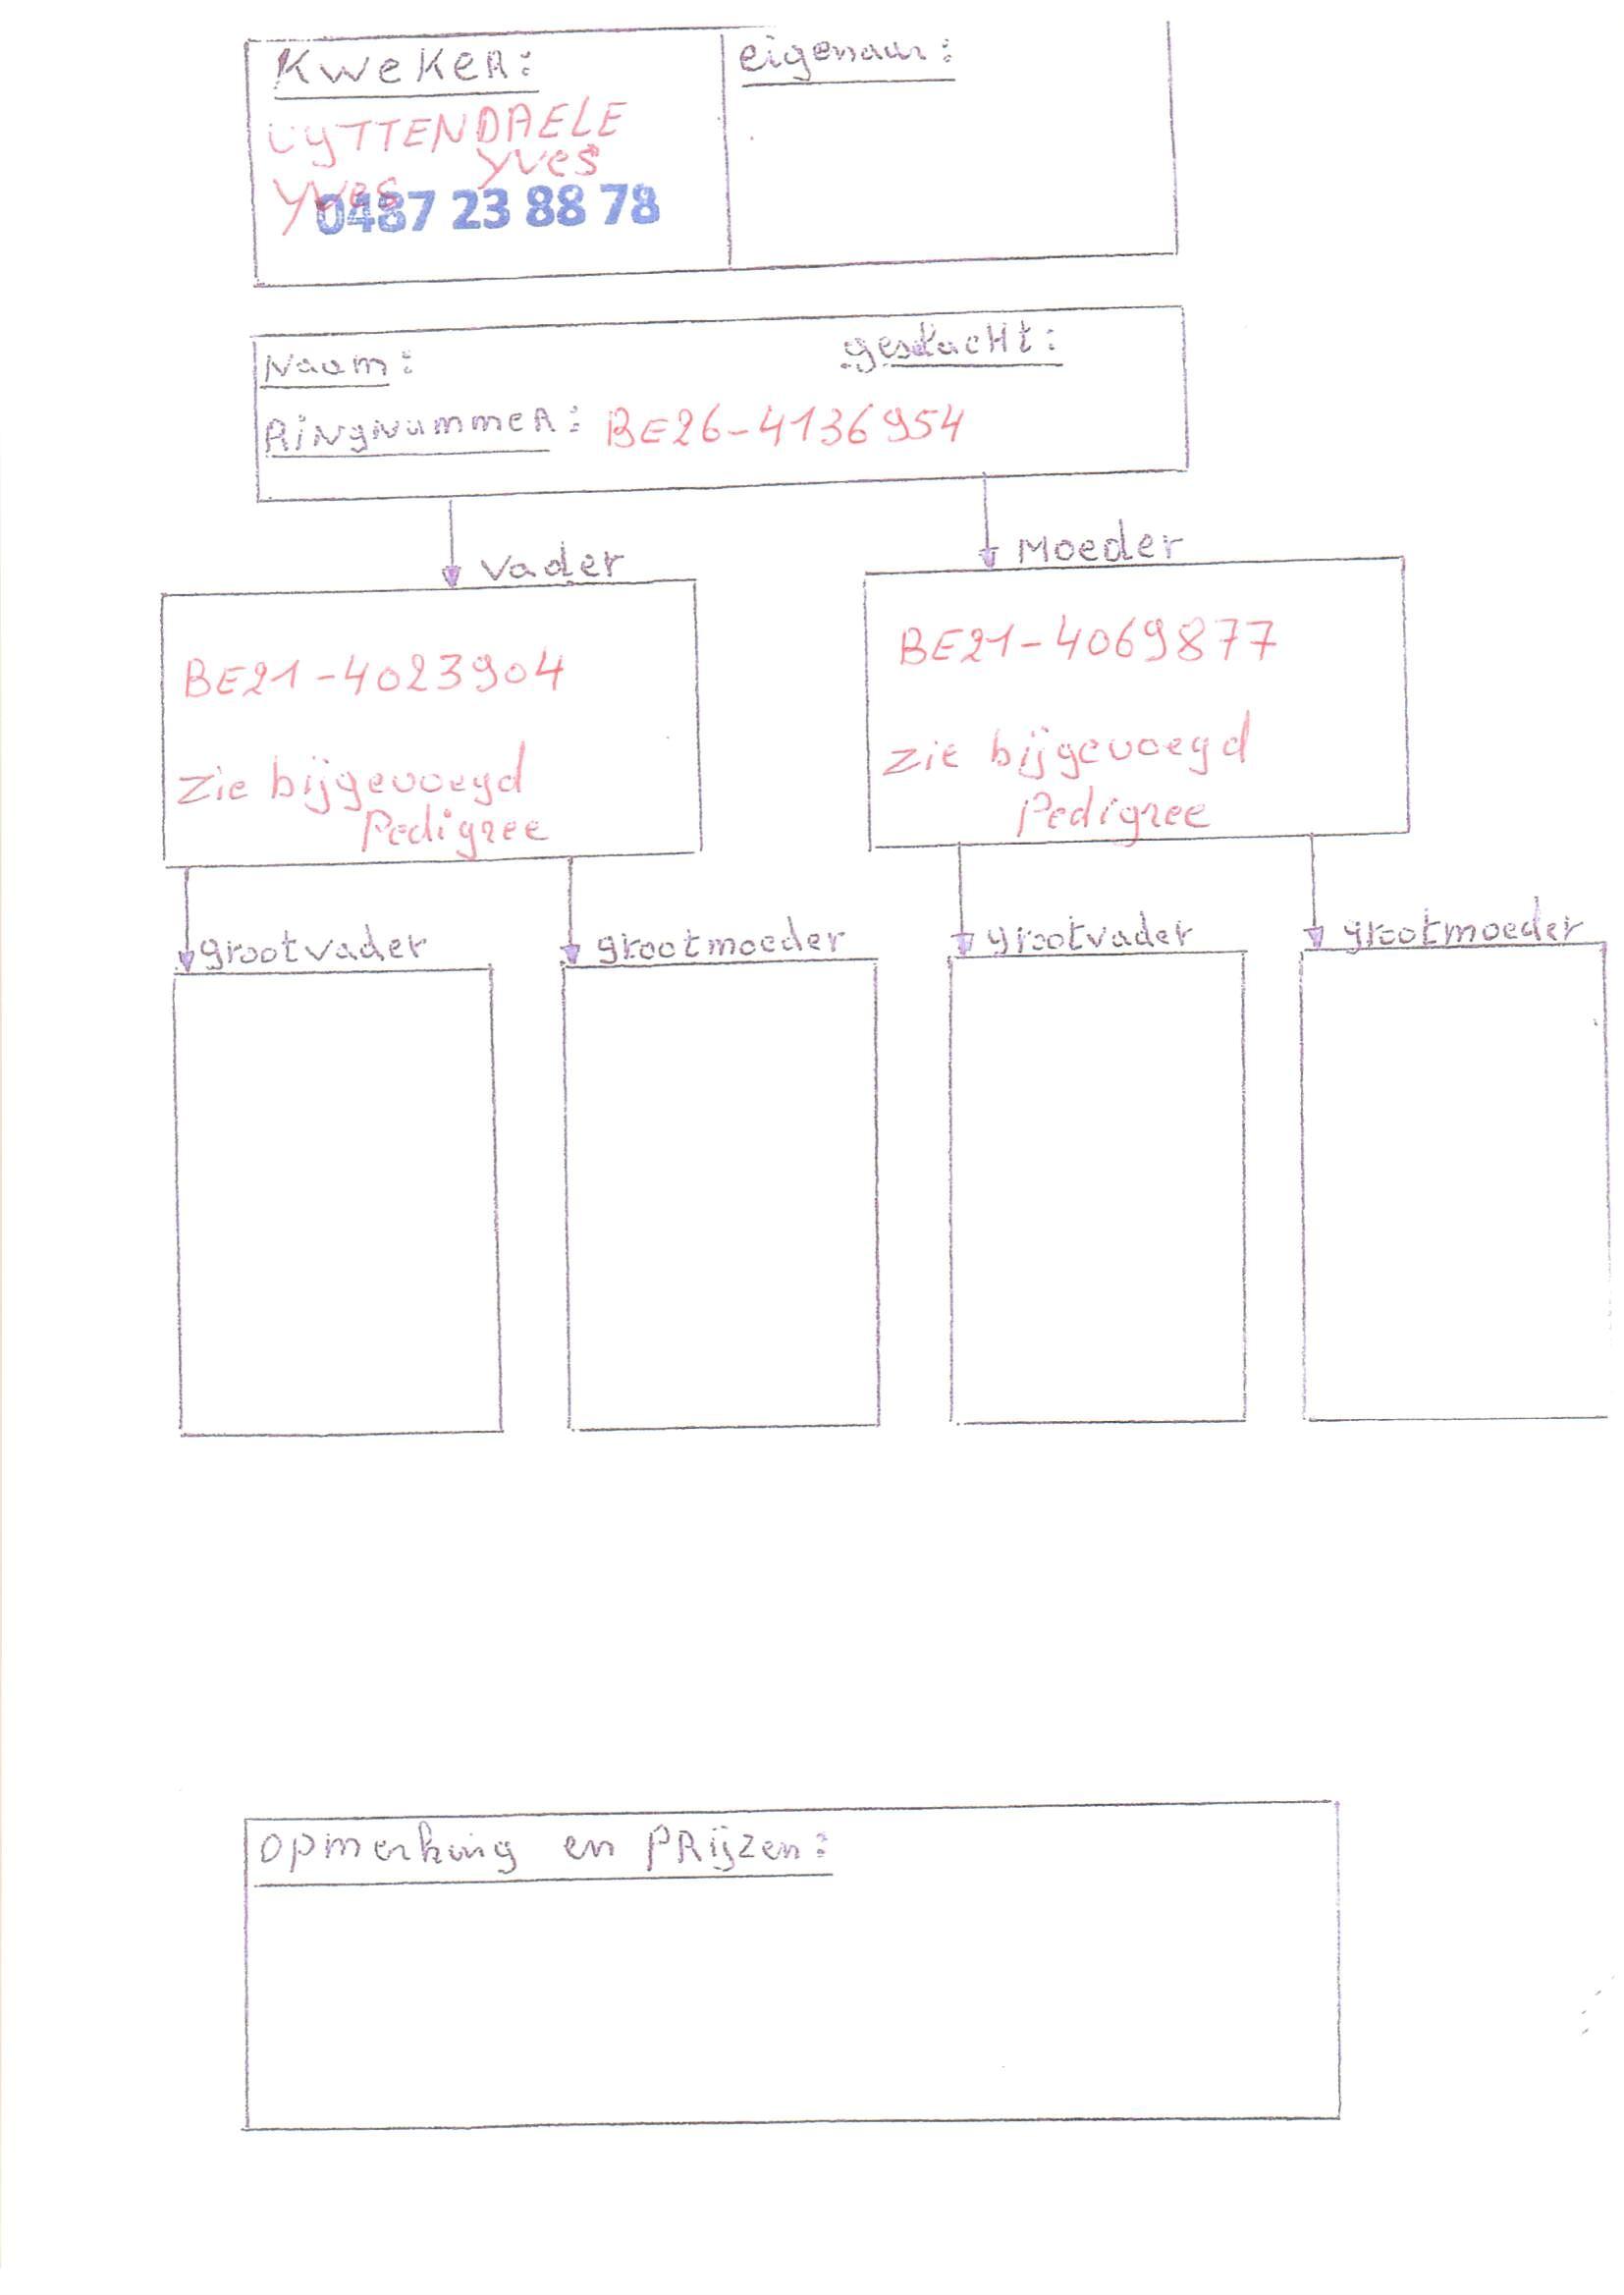 Kweker:
eigenaar:
UYTTENDAELE
Yves
Yves
0487 23 88 78
Naam:
geslacht:
Ringnummer: BE26-4136954
Vader
Moeder
BE21-4023904
zie bijgevoegd
Pedigree
BE21-4069877
zie bijgevoegd
Pedigree
grootvader
grootmoeder
grootvader
grootmoeder
opmerking en PRijzen: